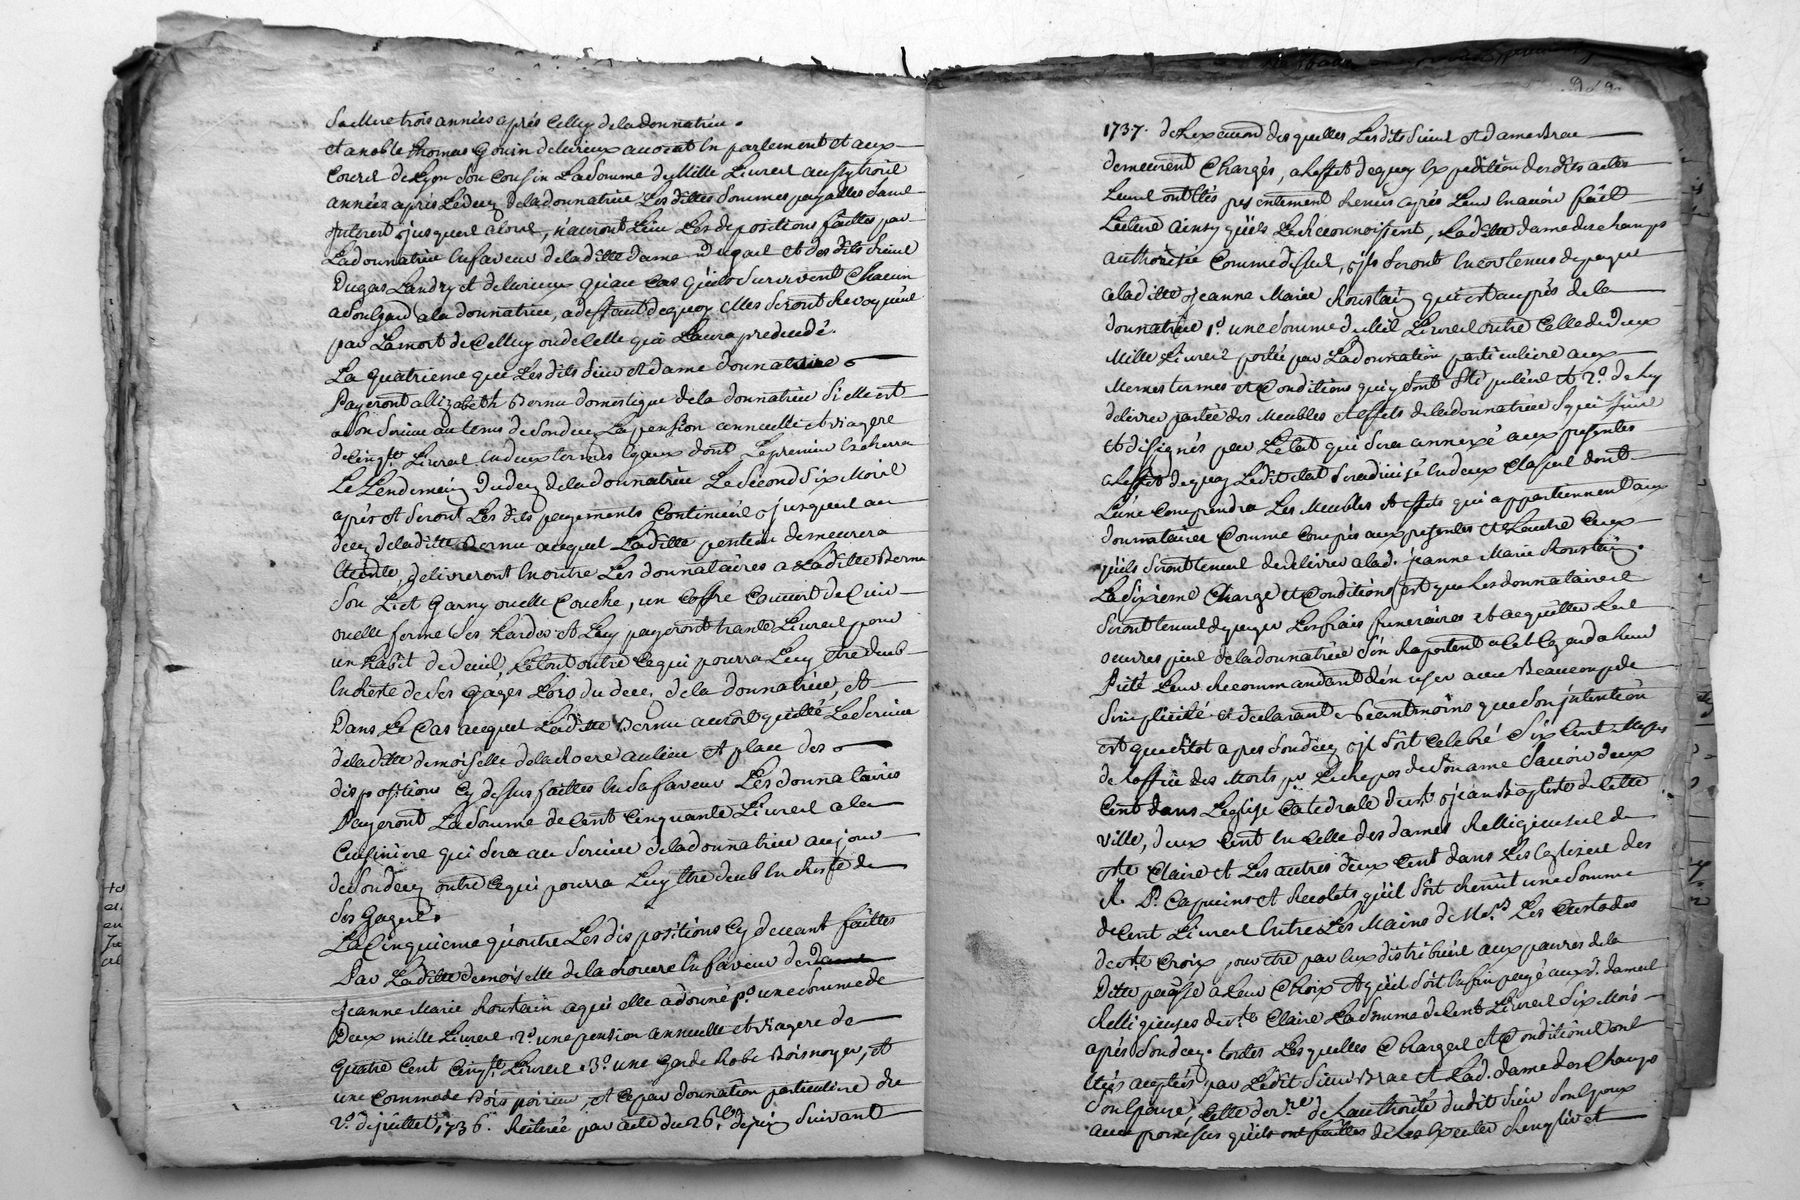 Sa Mere trois années aprés Celluy de la donnatrice.
et a noble thomas Gouin delurieux avocat En parlement et aux
Cours de Lyon Son Cousin La Somme de Mille Livres aussy trois
années apres Le decez de la donnatrice Les dittes Sommes payables Sans
jnterest jusques alors, n'auront Lieu Les dispositions faittes par
La donnatrice En faveur de la ditte dame Dugas et des dits Sieurs
Dugas Landry et delurieux qu'au Cas qu'ils Survivront Chacun
a Son Egard a la donnatrice, a deffaut de quoy Elles Seront Revoquées
par La mort de Celluy ou de Celle qui L'aura predecedé.
La quatrieme que Les dits Sieur et dame donnataires
Payeront a Elizabeth Bernu domestique de la donnatrice Si Elle est
a Son Service au tems de Son decez La pension annuelle et viagere
de Cinq.te Livres En deux termes Egaux dont Le premier Echerra
Le Lendemain Du decez de la donnatrice Le Second Six Mois
aprés et Seront Les dits payements Continués jusques au
decez de la ditte Bernu auquel La ditte pension demeurera
Eteinte, delivreront En outre Les donnatáires a La ditte Bernu
Son Lict Garny ou Elle Couche, un Coffre Couvert de Cuir
ou Elle ferme Ses hardes et Luy payeront trante Livres pour
un habit de deuil, Le tout outre Ce qui pourra Luy Etre deub
En Reste de Ses Gages Lors du decez de la donnatrice, et
Dans Le Cas auquel La ditte Bernu auroit quitté Le Service
de la ditte demoiselle de la Rovere au lieu et place des
dispositions Cy dessus faittes En Sa faveur Les donnataires
Payeront La Somme de Cent Cinquante Livres a la
Cuisiniere qui Sera au Service de la donnatrice au jour
de Son decez outre Ce qui pourra Luy Etre deub En Reste de
Ses Gages.
La Cinquieme qu'outre Les dispositions Cy devant faittes
Par La ditte demoiselle de la Rovere En faveur de
jeanne Marie Roustain a qui Elle a donné p.o une Somme de
Deux mille Livres 2.o une pension annuelle et viagere de
Quatre Cent Cinq.te Livres 3.o une Garde Robe Bois noyer, et
une Commode Bois poirier, et Ce par donnation particuliere du
2.e de juillet 1736. Reiterée par acte du 26.e de juin Suivant
1737. de L'execution des quelles Les dits Sieur et dame Brac
demeurent Chargés, a L'effet de quoy Expedition des dits actes
Leur ont Etés presentement Remis aprés Leur En avoir fait
Lecture ainsy qu'ils Le Reconnoissent, La ditte dame deschamps
authorisée Comme dessus, ils Seront En outre tenus de payer
a la ditte jeanne Marie Roustain qui est auprés de la
donnatrice 1.o une Somme de Mil Livres outre Celle de Deux
Mille Livres portée par La donnation particuliere aux
Memes termes et Conditions qui y Sont Stipulées et 2.o de Luy
delivrer partie des Meubles et Effets de la donnatrice
et designés par L'Etat qui Sera annexé aux presentes
a L'effet de quoy Le dit Etat Sera divisé En deux Classes dont
L'une Comprendra Les Meubles et Effets qui appartiennent aux
donnataires Comme Compris aux presentes et L'autre Ceux
qu'ils Seront tenus de delivrer a lad. jeanne Marie Roustain.
La Sixieme Charge et Conditions est que Les donnataires
Seront tenus de payer Les frais funeraires et acquitter Les
oeuvres pies de la donnatrice S'en Raportent a Cet Egard a Leur
Pieté Leur Recommandant d'En user avec Beaucoup de
Simplicité et declarant Neantmoins que Son jntention
est que Sitot apres Son decez il Soit Celebré Six Cent Messes
de L'office des Morts p.r Le Repos de Son ame Savoir deux
Cent dans L'eglise Catedrale de st jean Baptiste de Cette
Ville, deux Cent En Celle des dames Religieuses de
Ste Claire et Les autres deux Cent dans Les Eglises des
R. P. Capucins et Recolets qu'il Soit Remit une Somme
de Cent Livres Entre Les Mains de M.rs Les Custodes
de Ste Croix pour etre par Eux distribuée aux pauvres de la
Ditte paroisse a Leur Choix et qu'il Soit Enfin payé aux d. dames
Religieuses de Ste Claire La Somme de Cent Livres Six Mois
aprés Son decez. toutes Lesquelles Charges et Conditions ont
Etés acceptées par Le dit Sieur Brac et Lad. dame des Champs
Son Epouse, Cette der.re de L'authorité dudit Sieur Son Epoux
aux promesses qu'ils ont faittes de Les Executer Remplir et